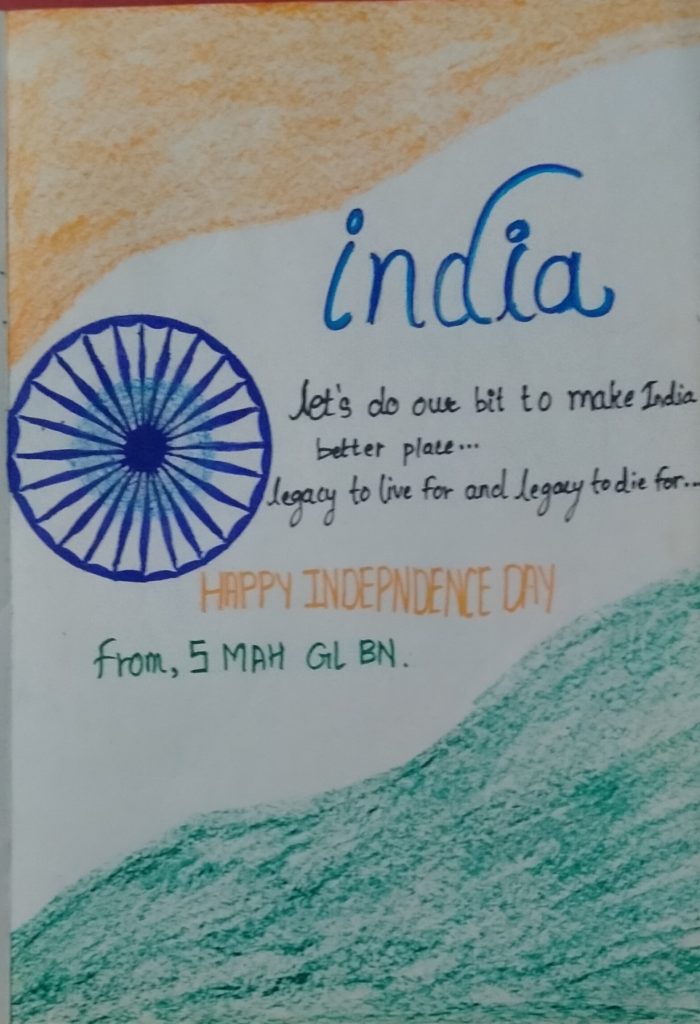 india
let's do our bit to make India
better place...
legacy to live for and legacy to die for...
HAPPY INDEPNDENCE DAY
from, 5 MAH GL BN.